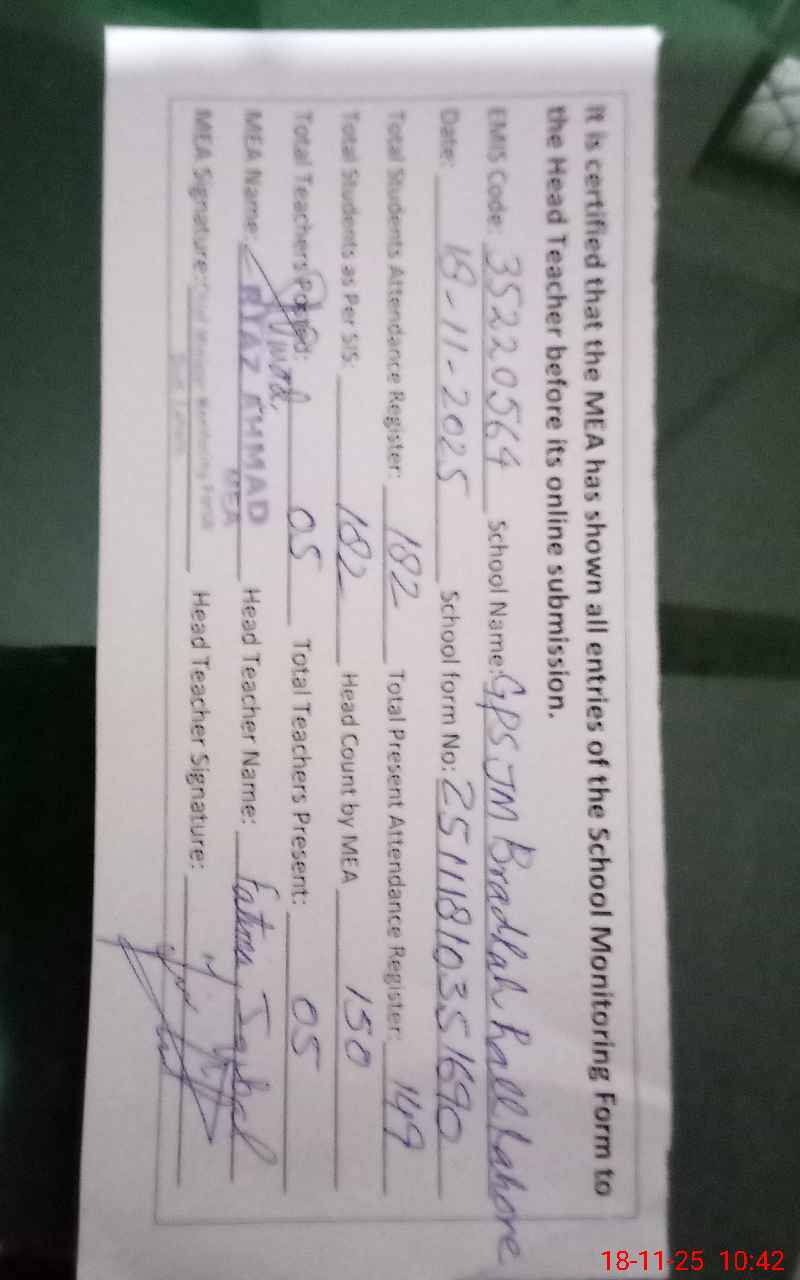 It is certified that the MEA has shown all entries of the School Monitoring Form to
the Head Teacher before its online submission.
EMIS Code: 35220564 School Name: GPS JM Bradlah hall Lahore
Date: 18-11-2025 School form No: 25111810351690
Total Students Attendance Register: 182 Total Present Attendance Register: 149
Total Students as Per SIS: 182 Head Count by MEA 150
Total Teachers Posted: 05 Total Teachers Present: 05
MEA Name: RIAZ AHMAD Head Teacher Name: Fatima Iqbal
MEA
MEA Signature: Head Teacher Signature:
18-11-25 10:42